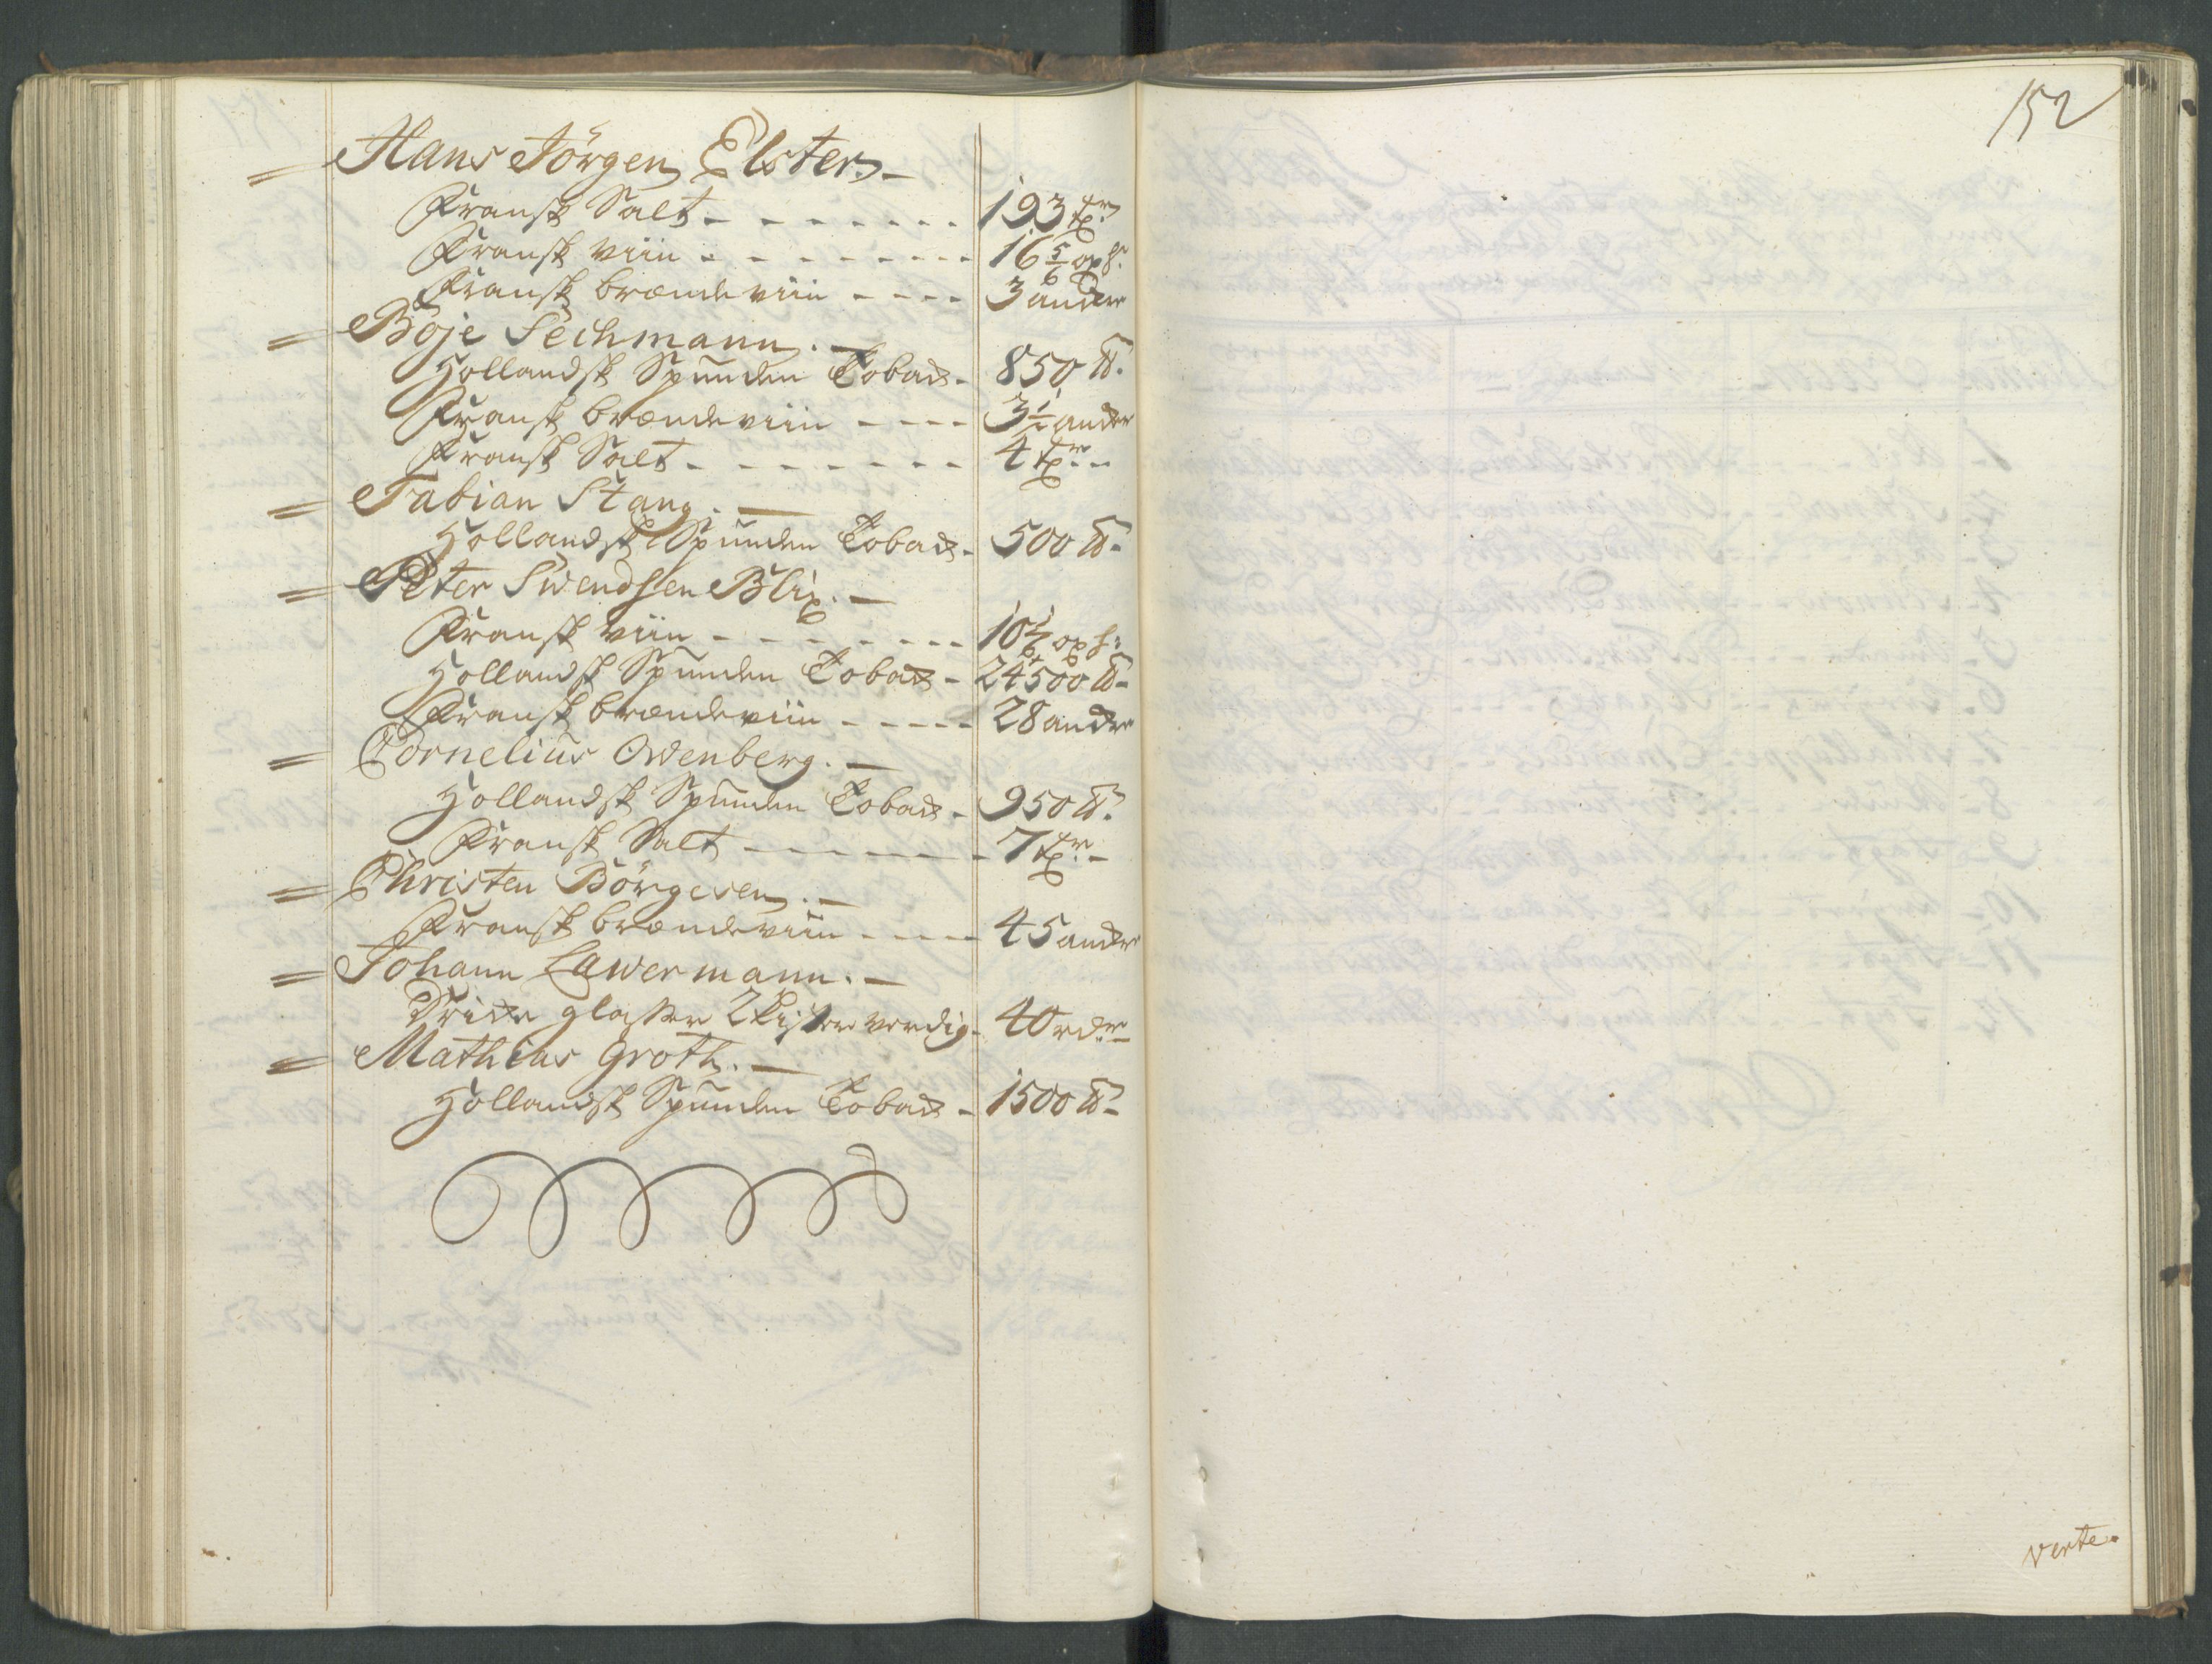 = Hans Jörgen Elster. -
Fransk Salt - - - - - - - 193 tr
Fransk Viin - - - - - - - - 16 5/6 oxh.
Fransk brændeviin - - - - 3 ancker
= Böje Teichmann. -
Hollandsk Spunden Toback - 850 ℔.
Fransk brændeviin - - - - 3 1/2 ancker
Fransk Salt - - - - - - - 4 tr. -
= Fabian Stang. -
Hollandsk Spunden Toback - 500 ℔ -
= Peter Swendsen Blix. -
Fransk Viin - - - - - - - - oxh.
Hollandsk Spunden Toback - 24500 ℔ -
Fransk brændeviin - - - - - 28 ancker
= Cornelius Owenberg. -
Hollandsk Spunden Toback - 950 ℔.
Fransk Salt - - - - - - - - 7 tr. -
= Christen Börgesen. -
Fransk brændeviin - - - - 45 ancker
= Johann Lawermann. -
Dricke glasser 2 kister verdig - 40 rdr -
= Mathias Groth. -
Hollandsk Spunden Toback - 1500 ℔ -
152
verte.